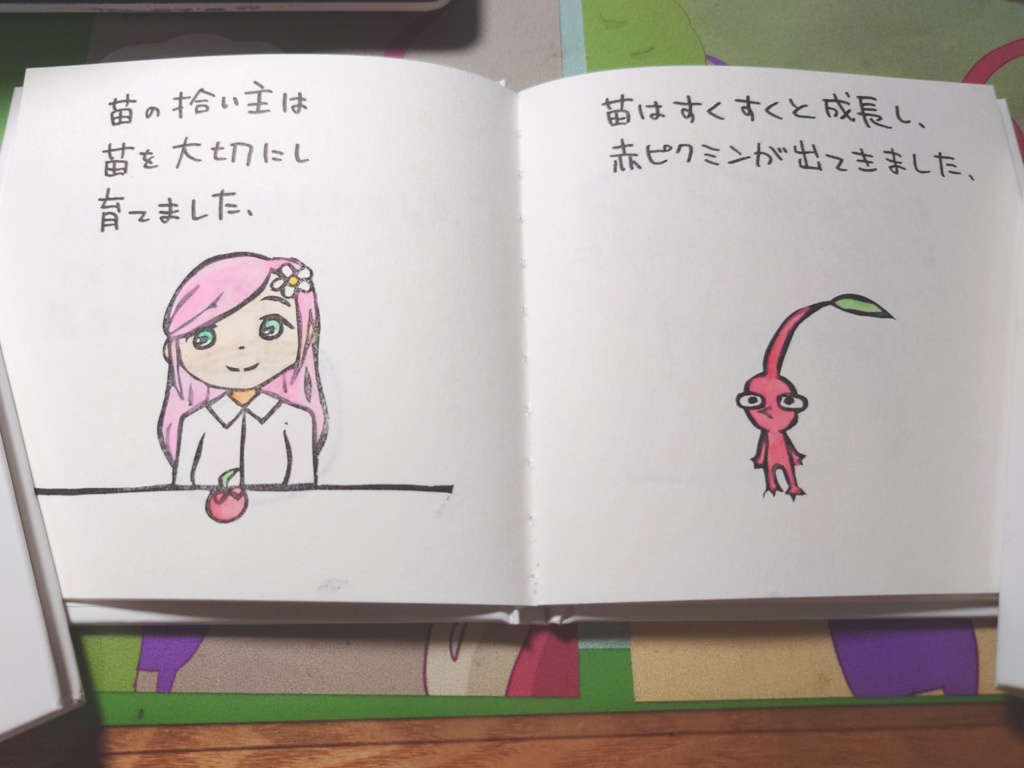 苗の拾い主は
苗を大切にし
育てました、
苗はすくすくと成長し、
赤ピクミンが出てきました、